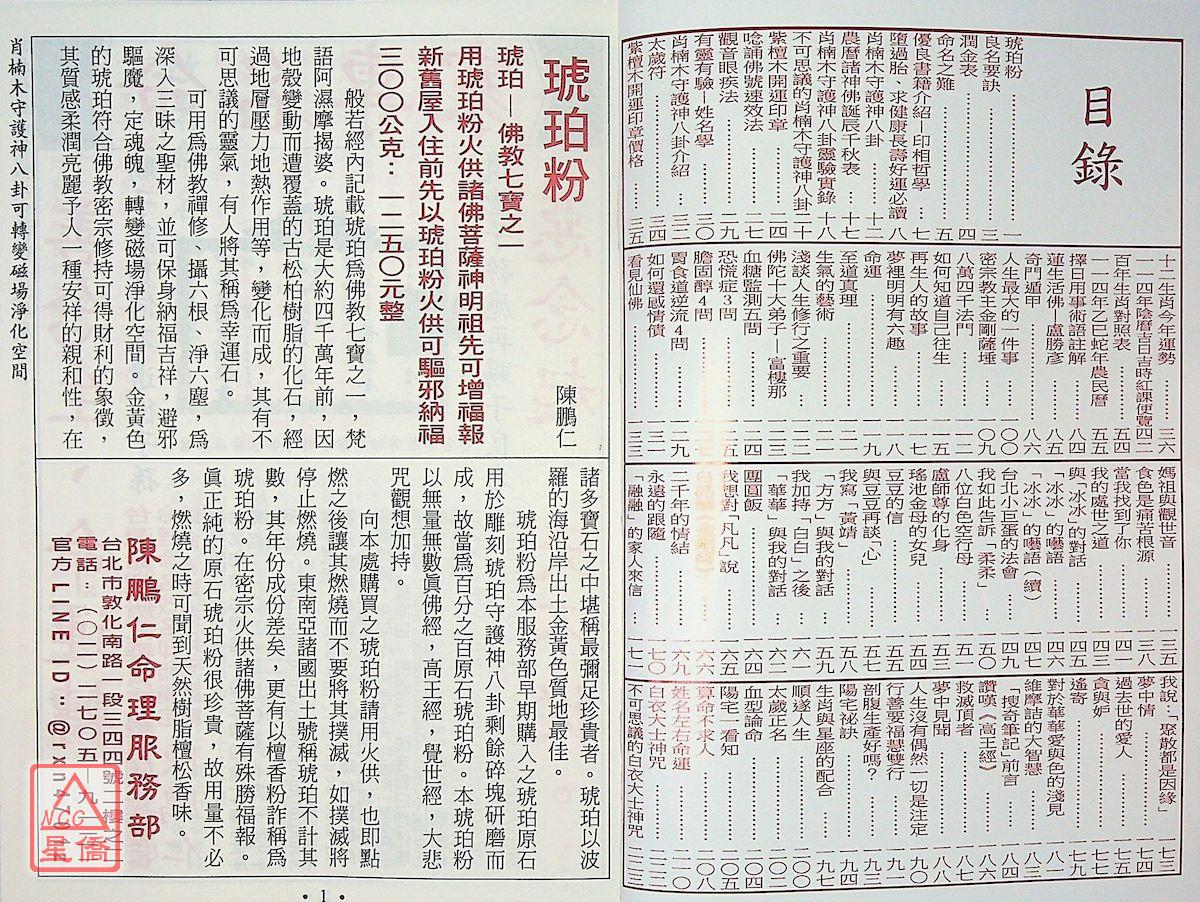 目錄
琥珀粉…………一
良名要訣…………三
潤金表…………四
命名之難…………五
優良書籍介紹—印相哲學…………七
墮過胎．求健康長壽好運必讀…………八
肖楠木守護神八卦…………十二
農曆諸神佛誕辰千秋表…………十七
肖楠木守護神八卦靈驗實錄…………十八
不可思議的肖楠木守護神八卦…………二十
紫檀木開運印章…………二四
唸誦佛號速效法…………二七
觀音眼疾法…………二九
有靈有驗—姓名學…………三〇
肖楠木守護神八卦介紹…………三二
太歲符…………三四
紫檀木開運印章價格…………三五
十二生肖今年運勢…………三六
一一四年陰曆吉日吉時紅課便覽…………四二
百年生肖對照表…………五四
一一四年乙巳蛇年農民曆…………五五
擇日用事術語註解…………八四
蓮生活佛—盧勝彥…………八五
奇門遁甲…………八六
人生最大的一件事…………一〇〇
密宗教主金剛薩埵…………一〇九
八萬四千法門…………一一二
如何知道自己往生…………一一五
再生人的故事…………一一七
夢裡明明有六趣…………一一八
命運…………一一九
至道真理…………一二一
生氣的藝術…………一二二
淺談人生修行之重要…………一二三
佛陀十大弟子—富樓那…………一二三
血糖監測五問…………一二四
恐慌症3問…………一二五
膽固醇4問…………一二七
胃食道逆流4問…………一二九
如何還感情債…………一三一
看見仙佛…………一三三
媽祖與觀世音…………一三五
食色是痛苦根源…………一三八
當我找到了你…………一四一
我的處世之道…………一四三
與「冰冰」的對話…………一四五
「冰冰」的囈語…………一四六
「冰冰」的囈語（續）…………一四七
台北小巨蛋的法會…………一四九
我如此告訴「柔柔」…………一五〇
八位白色空行母…………一五一
盧師尊的化身…………一五三
瑤池金母的女兒…………一五四
豆豆的信…………一五五
與豆豆再談「心」…………一五七
我寫「黃靖」…………一五八
「方方」與我的對話…………一五九
我加持「白白」之後…………一六一
「華華」與我的對話…………一六二
團圓飯…………一六四
我想對「凡凡」說…………一六五
二千年的情結…………一六九
永遠的跟隨…………一七〇
「融融」的家人來信…………一七一
我說：「聚散都是因緣」…………一七三
夢中情…………一七四
過去世的愛人…………一七五
貪與妒…………一七七
遙寄…………一七八
對於華華愛與色的淺見…………一七九
維摩詰的大智慧…………一八一
「搜奇筆記」前言…………一八三
讚嘆《高王經》…………一八六
救滅頂者…………一八七
夢中見聞…………一八八
人生沒有偶然一切是注定…………一九〇
行善要福慧雙行…………一九二
剖腹生產好嗎？…………一九三
陽宅祕訣…………一九四
生肖與星座的配合…………一九七
順遂人生…………二〇〇
太歲正名…………二〇二
血型論命…………二〇四
陽宅一看知…………二〇五
算命不求人…………二〇八
姓名左右命運…………二一〇
白衣大士神咒…………二二二
不可思議的白衣大士神咒…………二二三
琥珀粉
陳鵬仁
琥珀—佛教七寶之一
用琥珀粉火供諸佛菩薩神明祖先可增福報
新舊屋入住前先以琥珀粉火供可驅邪納福
三〇〇公克：一二五〇元整
般若經內記載琥珀為佛教七寶之一，梵
語阿濕摩揭婆。琥珀是大約四千萬年前，因
地殼變動而遭覆蓋的古松柏樹脂的化石，經
過地層壓力地熱作用等，變化而成，其有不
可思議的靈氣，有人將其稱為幸運石。
可用為佛教禪修、攝六根、淨六塵，為
深入三昧之聖材，並可保身納福吉祥，避邪
驅魔，定魂魄，轉變磁場淨化空間。金黃色
的琥珀符合佛教密宗修持可得財利的象徵，
其質感柔潤亮麗予人一種安祥的親和性，在
諸多寶石之中堪稱最彌足珍貴者。琥珀以波
羅的海沿岸出土金黃色質地最佳。
琥珀粉為本服務部早期購入之琥珀原石
用於雕刻琥珀守護神八卦剩餘碎塊研磨而
成，故當為百分之百原石琥珀粉。本琥珀粉
以無量無數真佛經，高王經，覺世經，大悲
咒觀想加持。
向本處購買之琥珀粉請用火供，也即點
燃之後讓其燃燒而不要將其撲滅，如撲滅將
停止燃燒。東南亞諸國出土號稱琥珀不計其
數，其年份成份差矣，更有以檀香粉詐稱為
琥珀粉。在密宗火供諸佛菩薩有殊勝福報。
真正純的原石琥珀粉很珍貴，故用量不必
多，燃燒之時可聞到天然樹脂檀松香味。
陳鵬仁命理服務部
台北市敦化南路一段三四四號二樓之二
電話：（〇二）二七〇五—九
官方LINE ID：@rxn
肖楠木守護神八卦可轉變磁場淨化空間
•1•
NCC
星僑